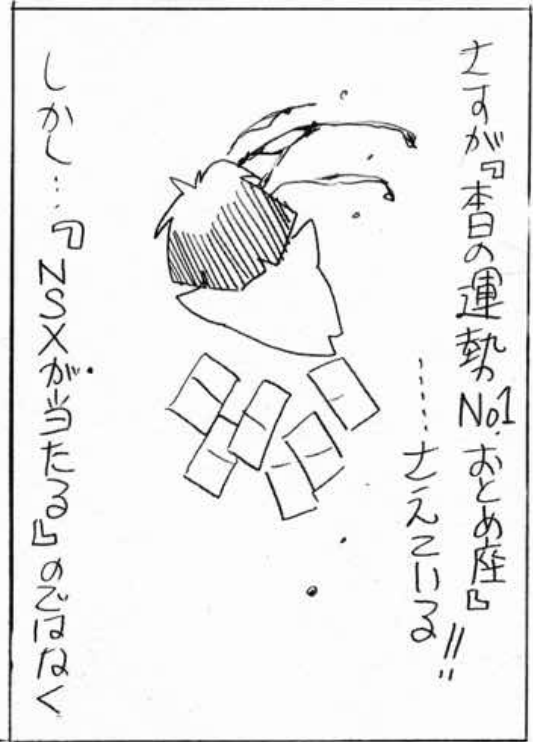 さすが『本日の運勢No.1おとめ座』!!
……さえている
しかし…『NSXが当たる』のではなく